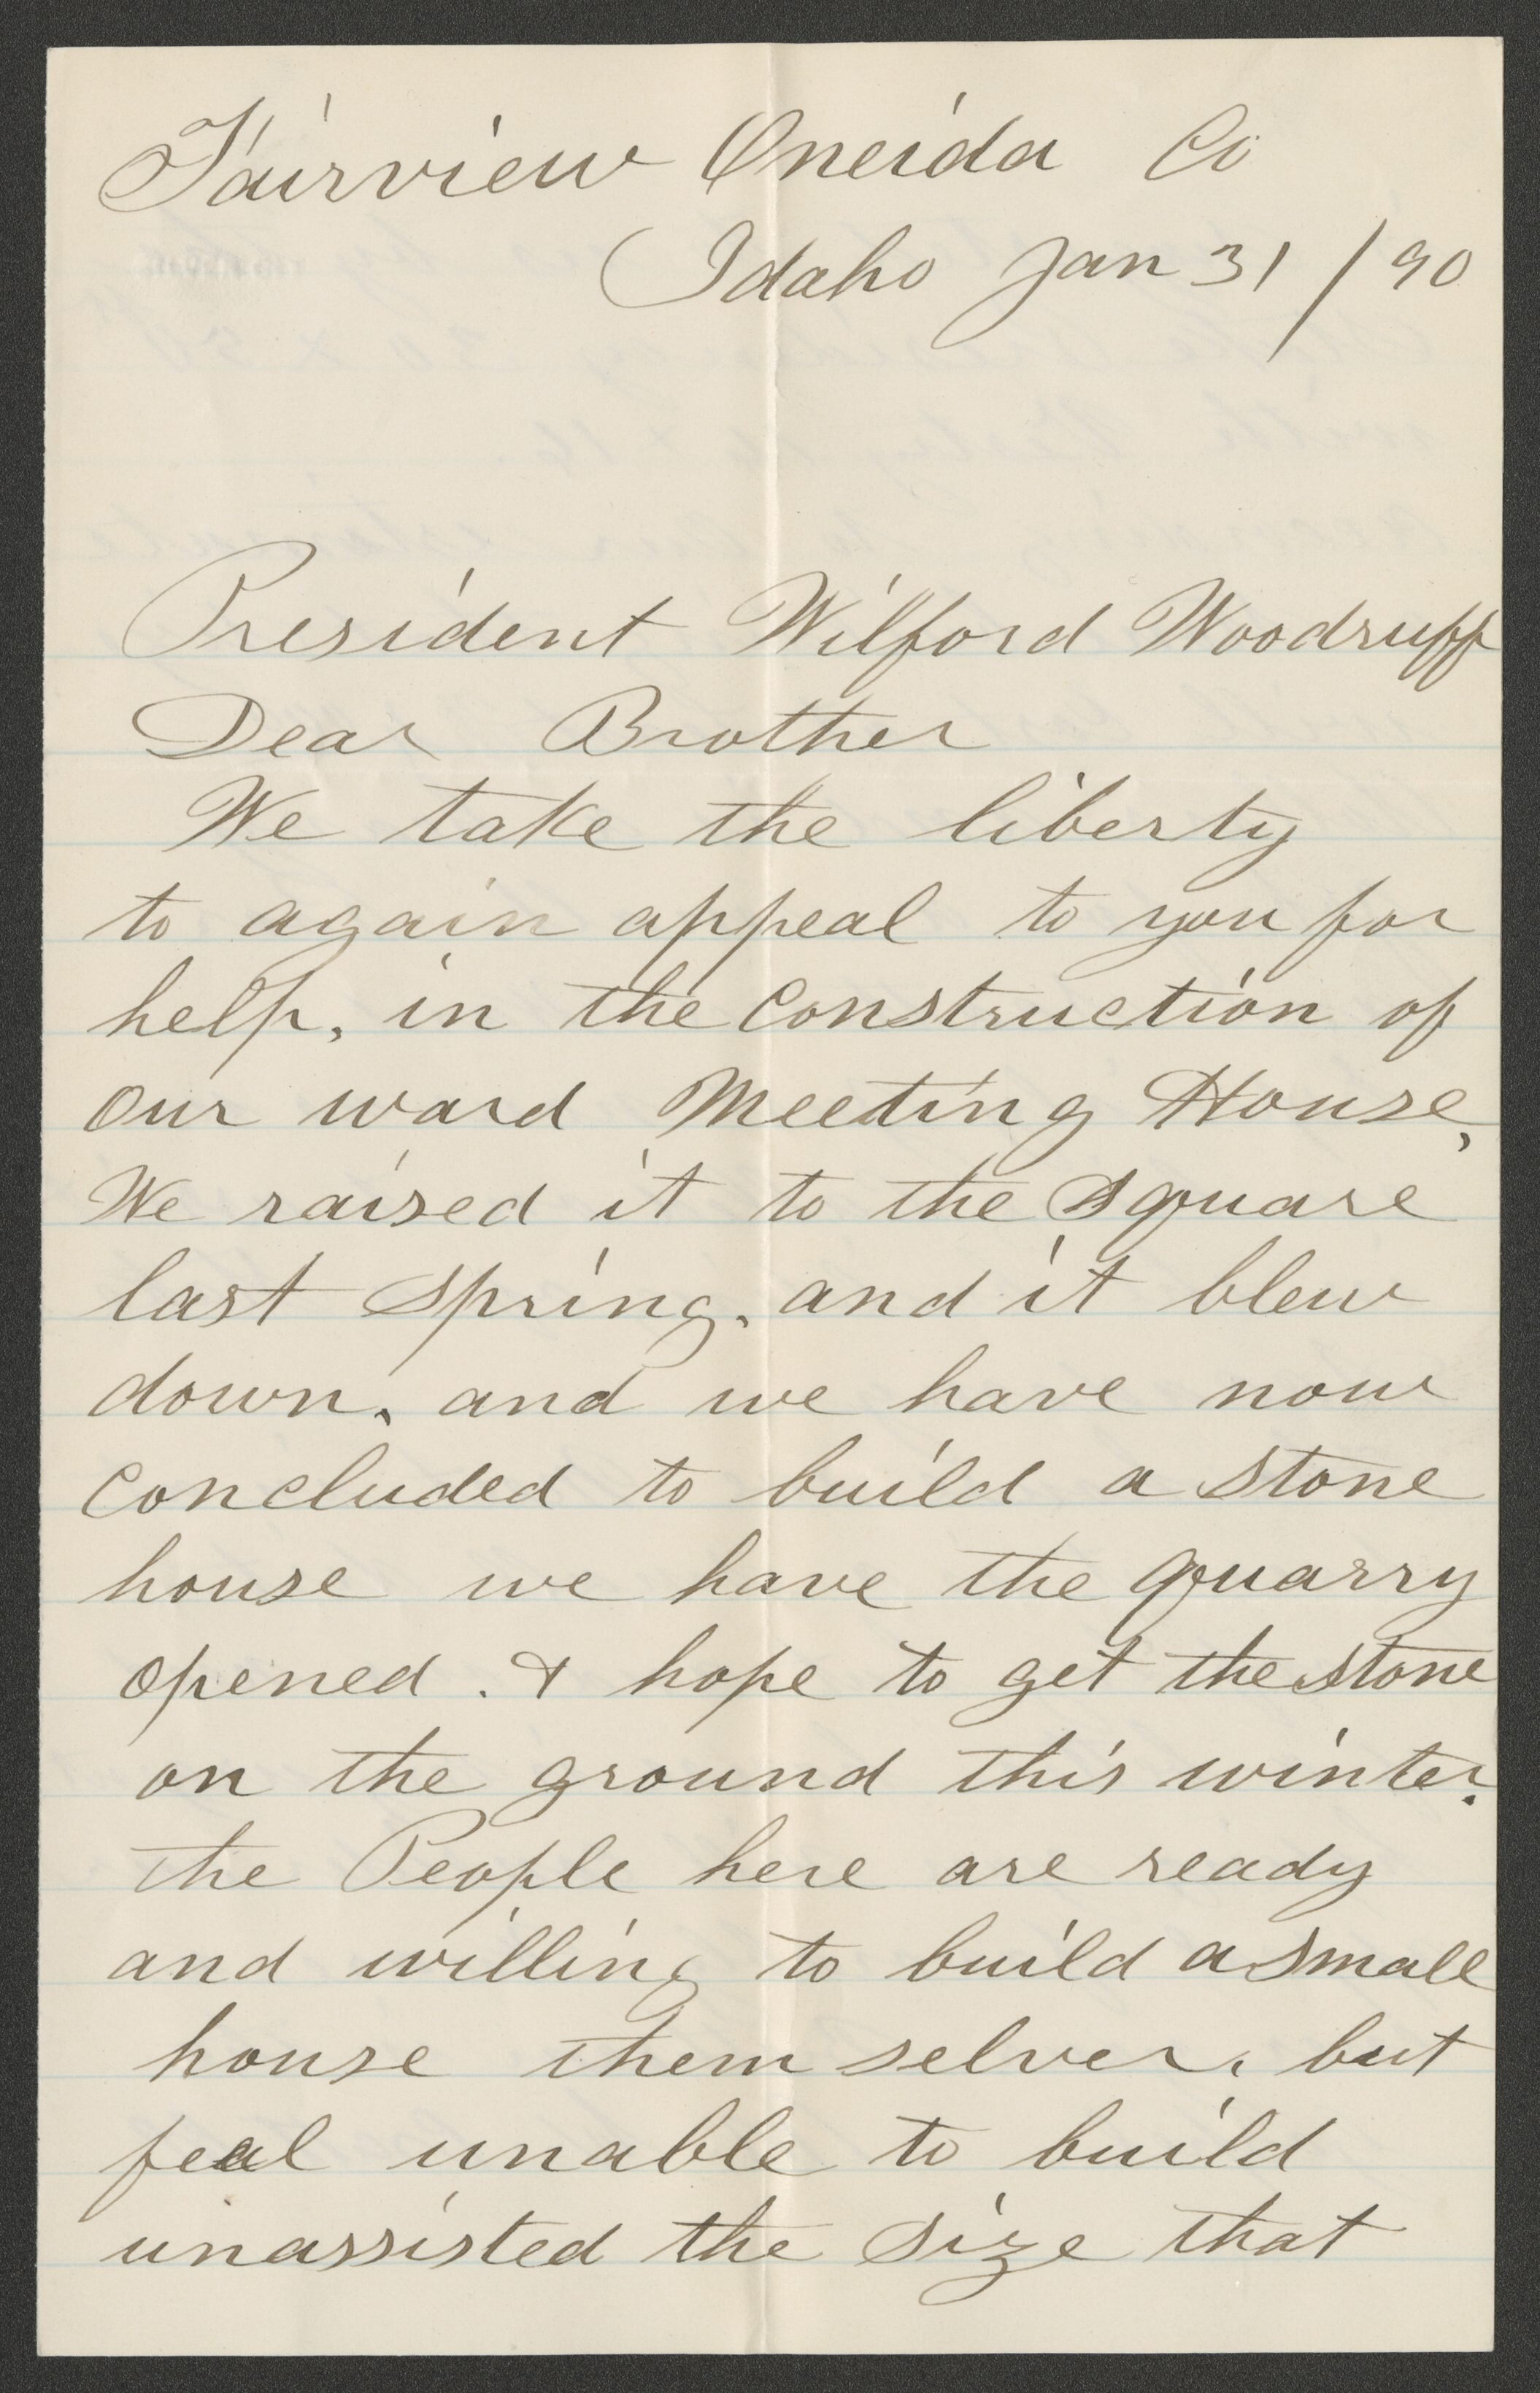 Fairview Oneida Co
Idaho Jan 31/90
President Wilford Woodruff
Dear Brother
We take the liberty
to again appeal to you for
help, in the Construction of
our ward Meeting House,
We raised it to the square
last spring, and it blew
down, and we have now
concluded to build a stone
house we have the quarry
opened. & hope to get the stone
on the ground this winter.
the People here are ready
and willing to build a small
house them selves, but
feal unable to build
unassisted the size that